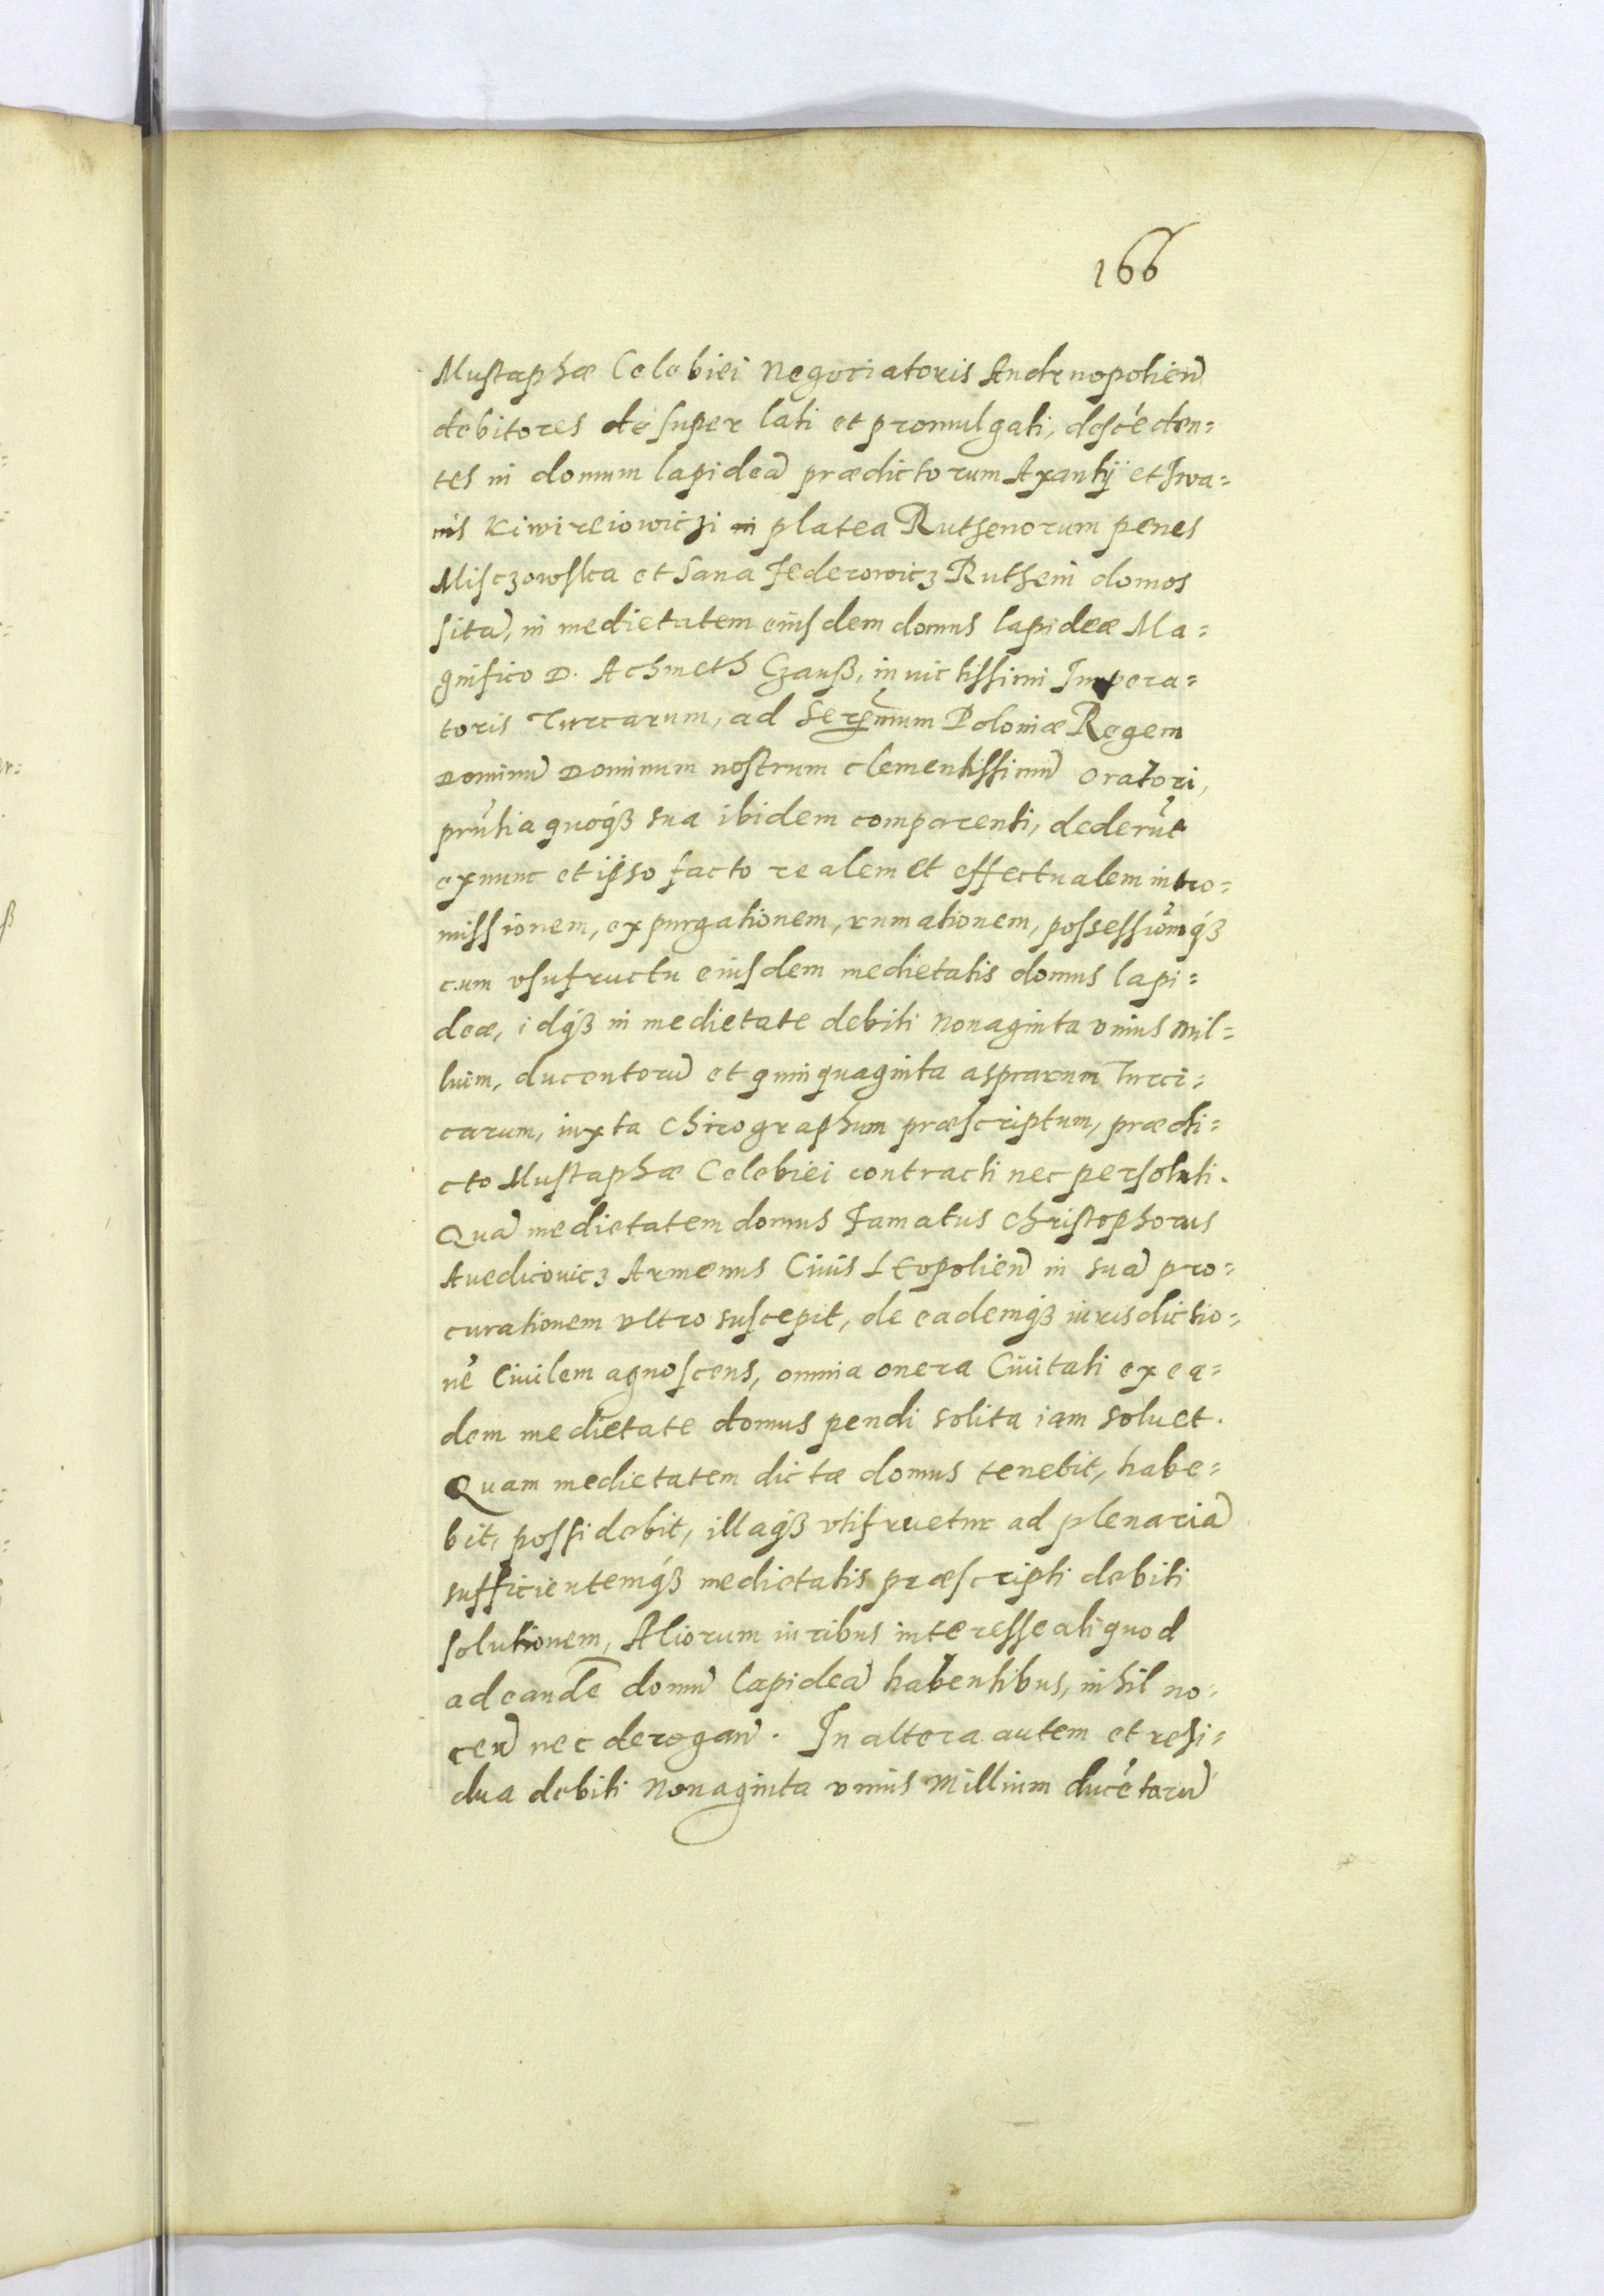 166
Mustaphæ Celebiei Negociatoris Andrnopolien̄
debitores de super lati et promulgati, descēden=
tes in domum lapideā prædictorum Axantij et Iwa=
nis Kiwireiowiczi in platea Ruthenorum penes
Misczowska et Sana Federowicz Rutheni domos
sitā, in medietatem eiusdem domus lapideæ Ma=
gnifico D. Achmeth Czauß, inuictissimi Impera=
toris Turcarum, ad Serēnmum Poloniæ Regem
Dominū Dominum nostrum clementissimū oratori,
pn̄tia quoq́ꝫ sua ibidem comparenti, dederūt
exnunc et ipso facto realem et effectualem intro=
missionem, expurgationem, rumationem, possessiōmq́ꝫ
cum vsufructu eiusdem medietatis domus lapi=
deæ, idq́ꝫ in medietate debiti nonaginta vnius mil=
lium, ducentorū et quinquaginta asprarum Turci=
carum, iuxta chirographum præscriptum, prædi=
cto Mustaphæ Celebiei contracti nec persoluti.
Quā medietatem domus Famatus Christophorus
Auedicouicz Armenus Ciuis LEopolien̄ in suā pro=
curationem vltro suscepit, de eademq́ꝫ iurisdictio=
nē Ciuilem agnoscens, omnia onera Ciuitati ex ea=
dem medietate domus pendi solita iam soluet.
Quam medietatem dictæ domus tenebit, habe=
bit, possidebit, illaq́ꝫ vtifruetur ad plenariā
sufficientemq́ꝫ medietatis præscripti debiti
solutionem, Aliorum iuribus interesse aliquod
ad eandē domū lapideā habentibus, nihil no=
cen̄ nec derogan̄. In altera autem et resi=
dua debiti Nonaginta vnius Millium ducētorū